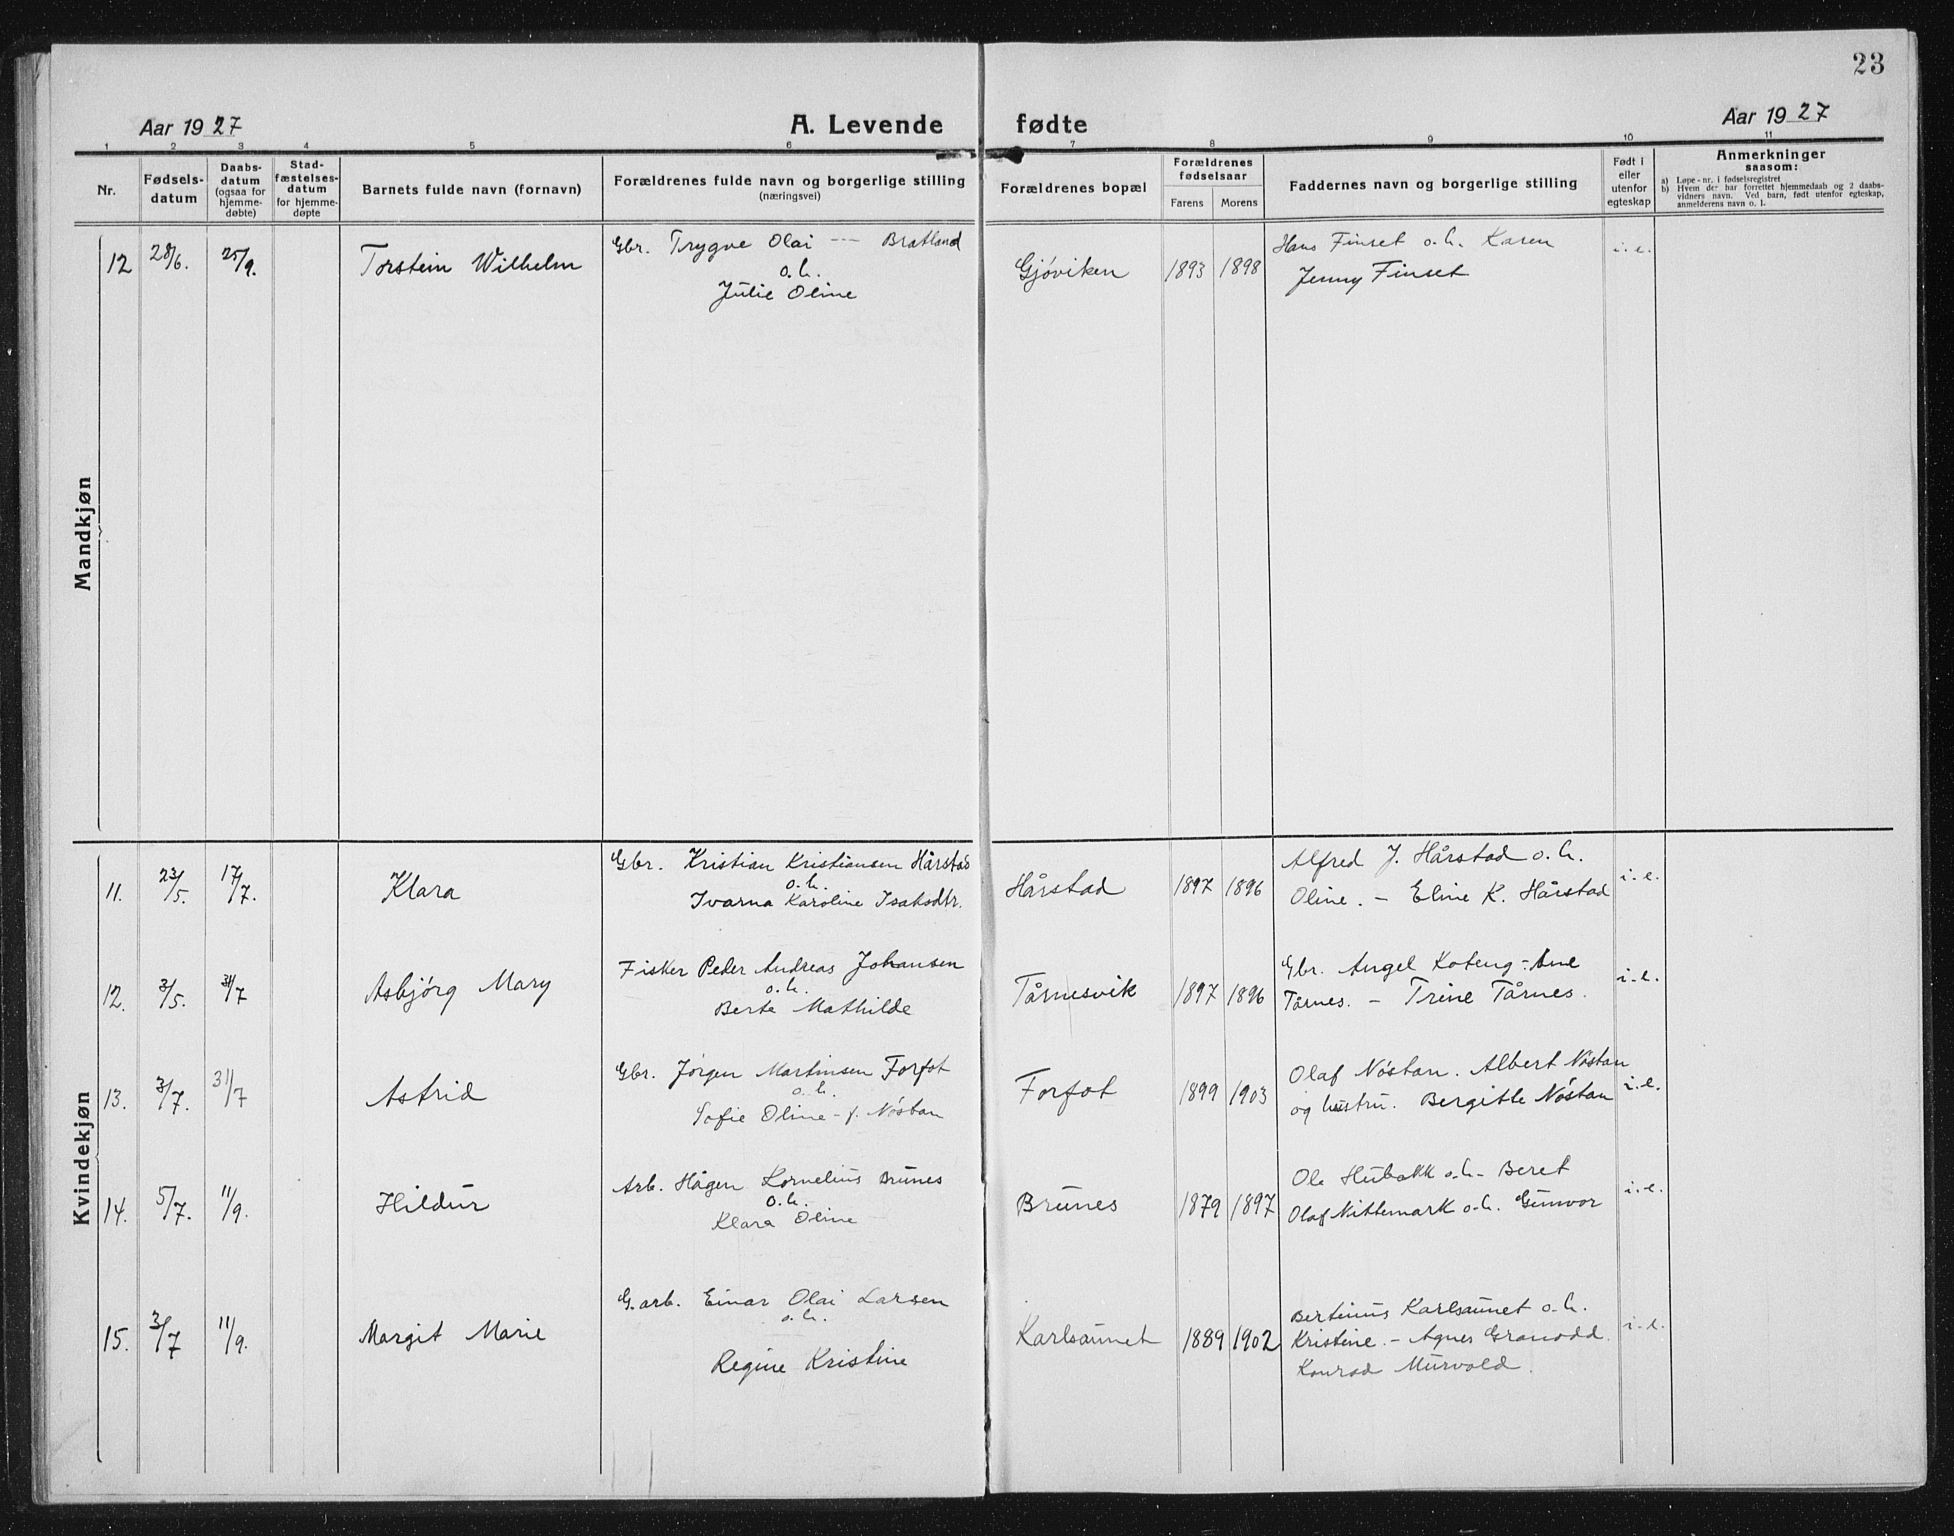 23
Aar 1927 A. Levende fødte Aar 1927
1 2 3 4 5 6 7 8 9 10 11
Nr.
Fødsels-
datum
Daabs-
datum
(ogsaa for
hjemme-
døbte)
Stad-
fæstelses-
datum
for hjemme-
døpte
Barnets fulde navn (fornavn)
Forældrenes fulde navn og borgerlige stilling
(næringsvei)
Forældrenes bopæl
Forældrenes
fødselsaar
Farens Morens
Faddernes navn og borgerlige stilling
Født i
eller
utenfor
egteskap
Anmerkninger
saasom:
a) Løpe-nr. i fødselsregistret
b) Hvem der har forrettet hjemmedaab og 2 daabs-
vidners navn. Ved barn, født utenfor egteskap,
anmelderens navn o. l.
Mandkjøn
12 28/6. 25/9. Torstein Wilhelm
Gbr. Trygve Olai --- Bratland
o.h.
Julie Oline
Gjøviken 1893 1898
Hans Finset o.h. Karen
Jenny Finset
i.e.
Kvindekjøn
11. 23/5. 17/7. Klara
Gbr. Kristian Kristiansen Hårstad
o.h.
Ivarna Karoline Isaksdtr.
Hårstad 1897 1896
Alfred J. Hårstad o.h.
Oline. - Eline K. Hårstad
i.e.
12. /5. /7 Asbjørg Mary
Fisker Peder Andreas Johansen
o.h.
Berte Mathilde
Tårnesvik 1897 1896
Gbr. Angel Koteng - Ane
Tårnes. - Trine Tårnes.
i.e.
13. 3/7. 31/7 Astrid
Gbr. Jørgen Martinsen Forfot
o.h.
Sofie Oline - f. Nóstan
Forfot 1899 1903
Olaf Nóstan. Albert Nóstan
og hustru. Bergitte Nóstan
i.e.
14. 5/7. 11/9. Hildur
Arb. Hågen Kornelius Brunes
o.h.
Klara Oline
Brunes 1879 1897
Ole Hubakk o.h. Beret
Olaf Nittemark o.h. Gunvor
i.e.
15. /7 11/9. Margit Marie
G.arb. Einar Olai Larsen
o.h.
Regine Kristine
Karlsaunet 1889 1902
Bertinus Karlsaunet o.h.
Kristine. - Agnes Granodd.
Konrad Murvold.
i.e.